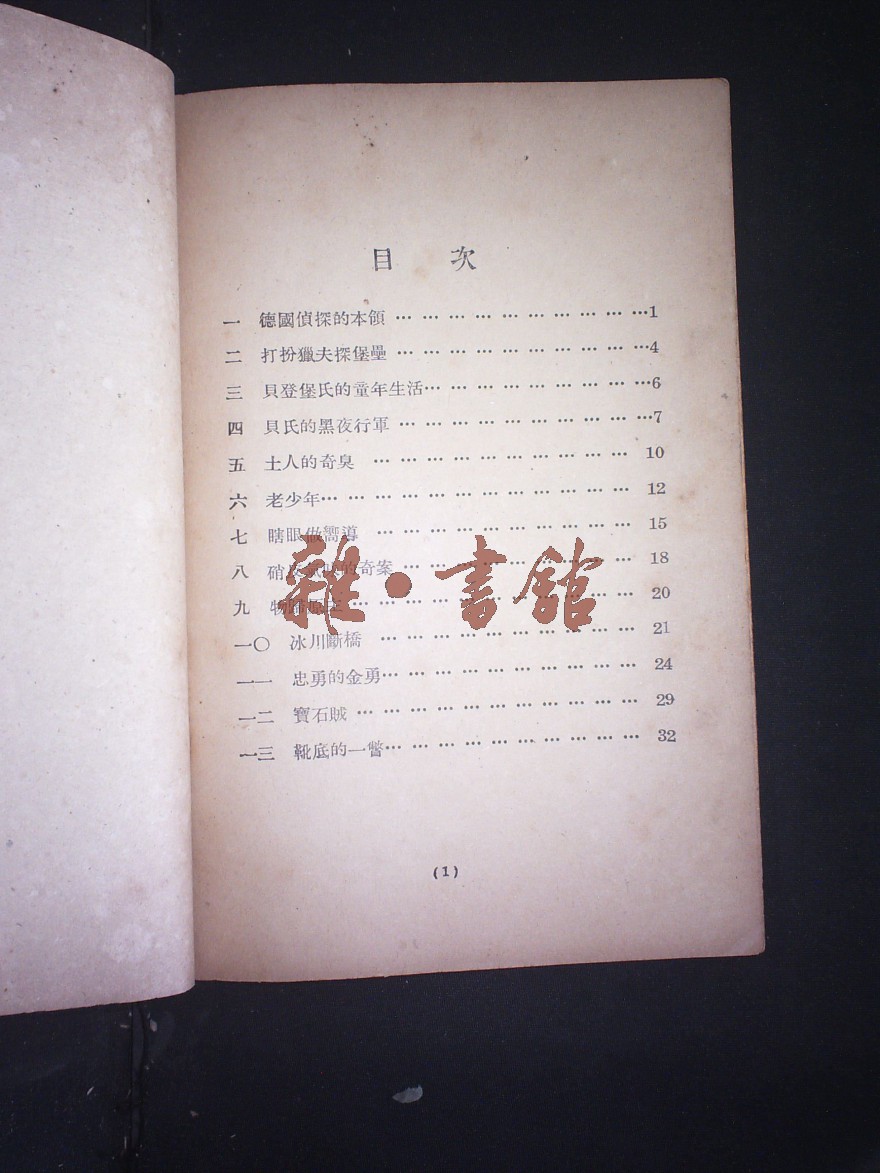 目 次
一 德國偵探的本領 … … … … … … … … … …1
二 打扮獵夫探堡壘 … … … … … … … … … … 4
三 貝登堡氏的童年生活… … … … … … … … … 6
四 貝氏的黑夜行軍 … … … … … … … … … …7
五 土人的奇臭 … … … … … … … … … … 10
六 老少年… … … … … … … … … … … … 12
七 瞎眼做嚮導 … … … … … … … … … … 15
八 硝 的奇案 … … … … … … … … … 18
九 物歸原主 … … … … … … … … … … … 20
一〇 冰川斷橋 … … … … … … … … … … 21
一一 忠勇的金勇… … … … … … … … … … 24
一二 寶石賊 … … … … … … … … … … … 29
一三 靴底的一瞥… … … … … … … … … … 32
雜·書館
(1)